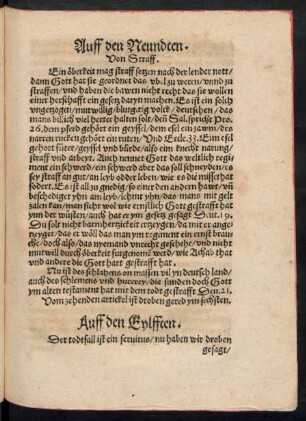 Auff den Neundten.
Von Straff.
Ein öberkeit mag straff setzen nach der lender nott/
dann Gott hat sie geordnet das vbel zu weren/ vnnd zu
straffen/ vnd haben die bawren nicht recht das sie wollen
einer herschafft ein gesetz daryn machen. Es ist ein solch
vngezogen/ mutwillig/ blutgirig volck/ deutschen/ das
mans billich viel herter halten solt/ deñ Sal. spricht Pro.
26. dem pferd gehört ein geyssel/ dem esel ein zawm/ des
narren rucken gehört ein ruten/ Vnd Eccle. 33. Eim esel
gehort fůter/ geyssel vnd bürde/ also eim knecht narung/
straff vnd arbeyt. Auch nennet Gott das weltlich regi
ment ein schwerd/ ein schwerd aber das soll schneyden/ es
sey straff an gut/ an leyb odder leben/ wie es die missethat
fodert. Es ist all zu gnedig/ so einer den andern hawt/ vñ
beschediget yhn am leyb/ ichmt yhn/ das mans mit gelt
zalen kan/ man siht wol wie ernstlich Gott gestrafft hat
ynn der wüsten/ auch hat er ym gesetz gesagt Deut. 19.
Du solt nicht barmhertzickeit ertzeygen/ da mit er anget
zeyget/ das er wöll das man ym regiment ein ernst brau
che/ doch also/ das nyemand vnrecht geschehe/ vnd nicht
mutwill durch öberkeit furgenomen werd/ wie Achab that
vnd andere die Gott hart gestrafft hat.
Nu ist des schlahens on massen vil yn deutsch land/
auch des schlemens vnd hurerey/ die sunden doch Gott
ym alten testament hat mit dem todt gestrafft Deu. 21.
Vom zehenden artickel ist droben gered ym sechsten.
Auff den Eylfften.
Der todtfall ist ein seruitus/ nu haben wir droben
gesagt/